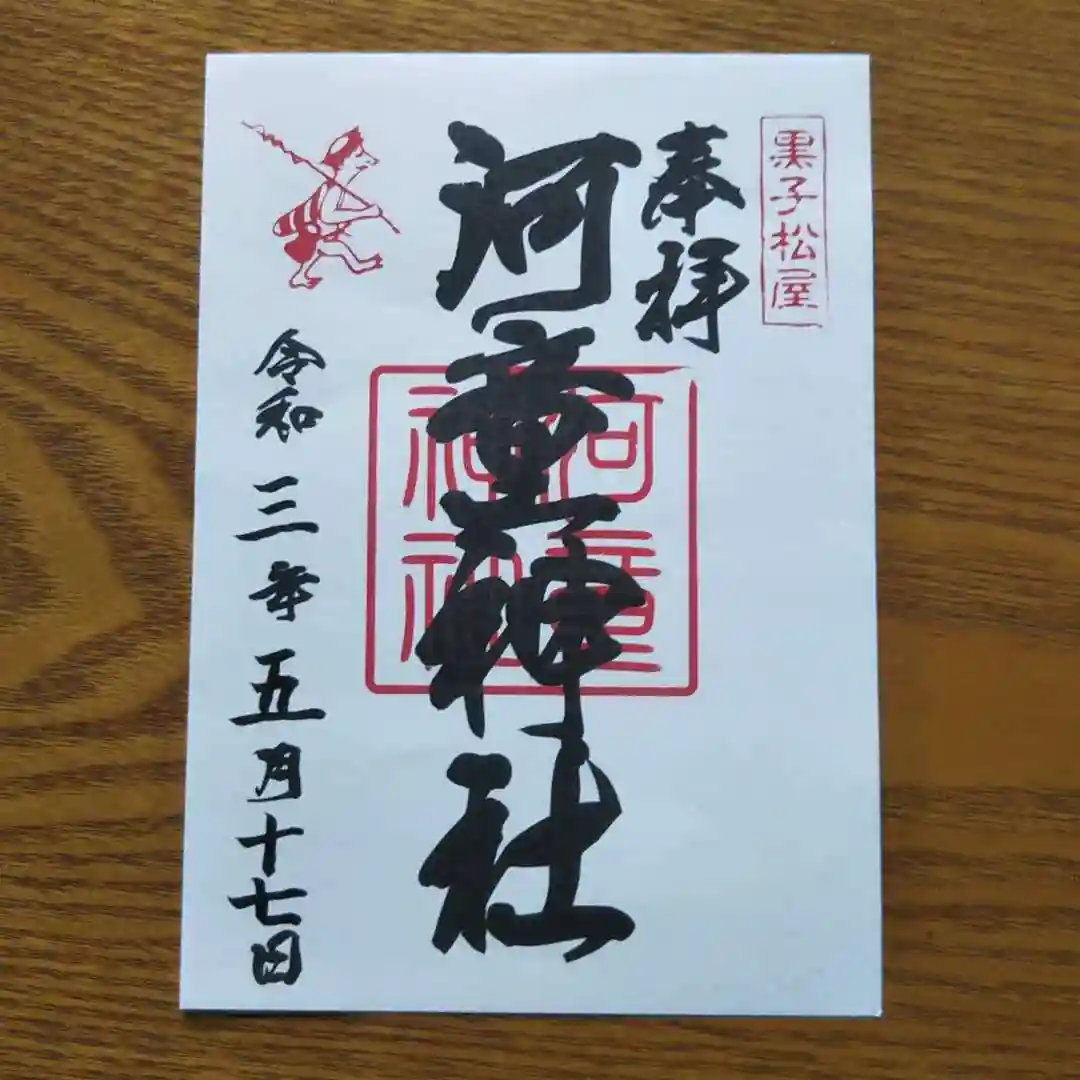 黒子松屋
奉拝
河童神社
河童神社
令和三年五月十七日